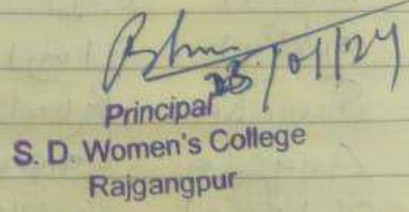 23/01/24
Principal
S. D. Women's College
Rajgangpur